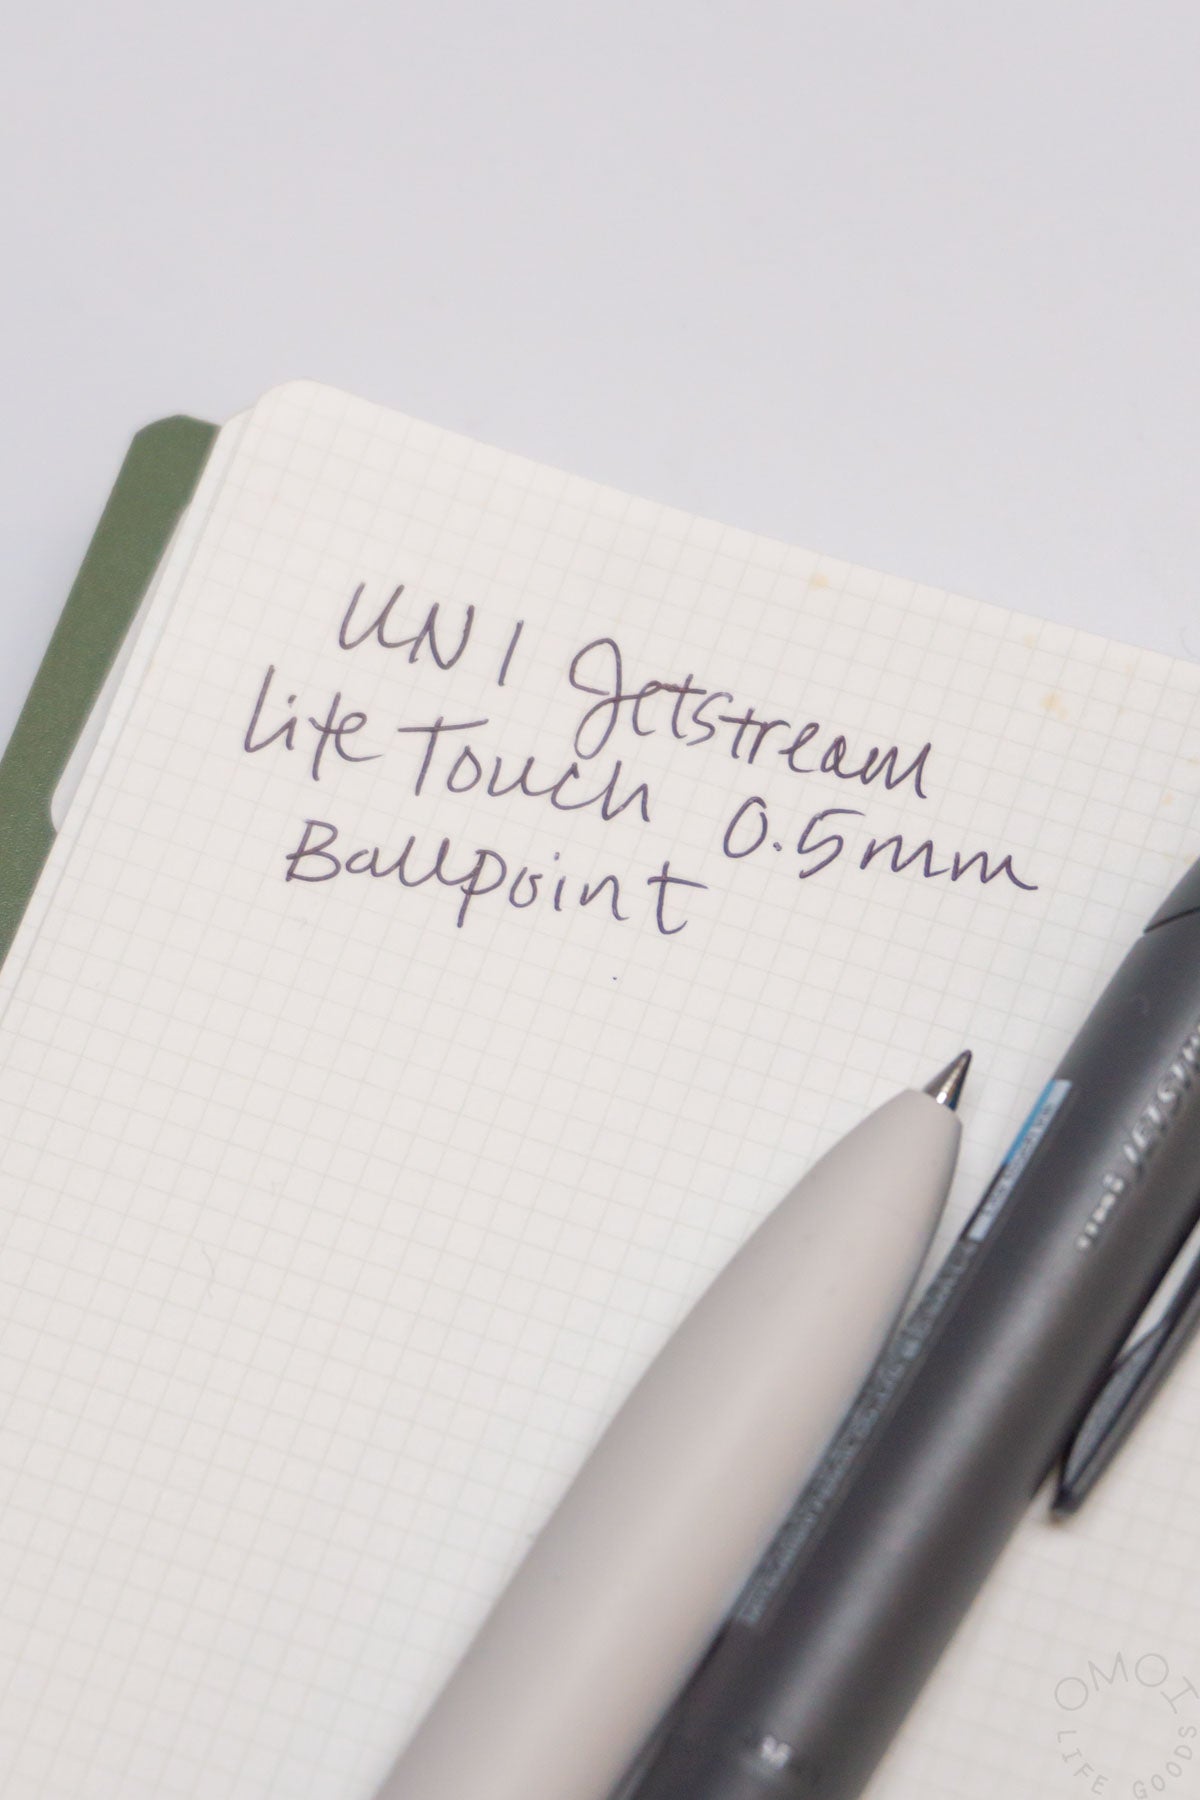 UNI Jetstream
Lite Touch 0.5mm
Ballpoint
uni JETST
OMOI
LIFE GOODS